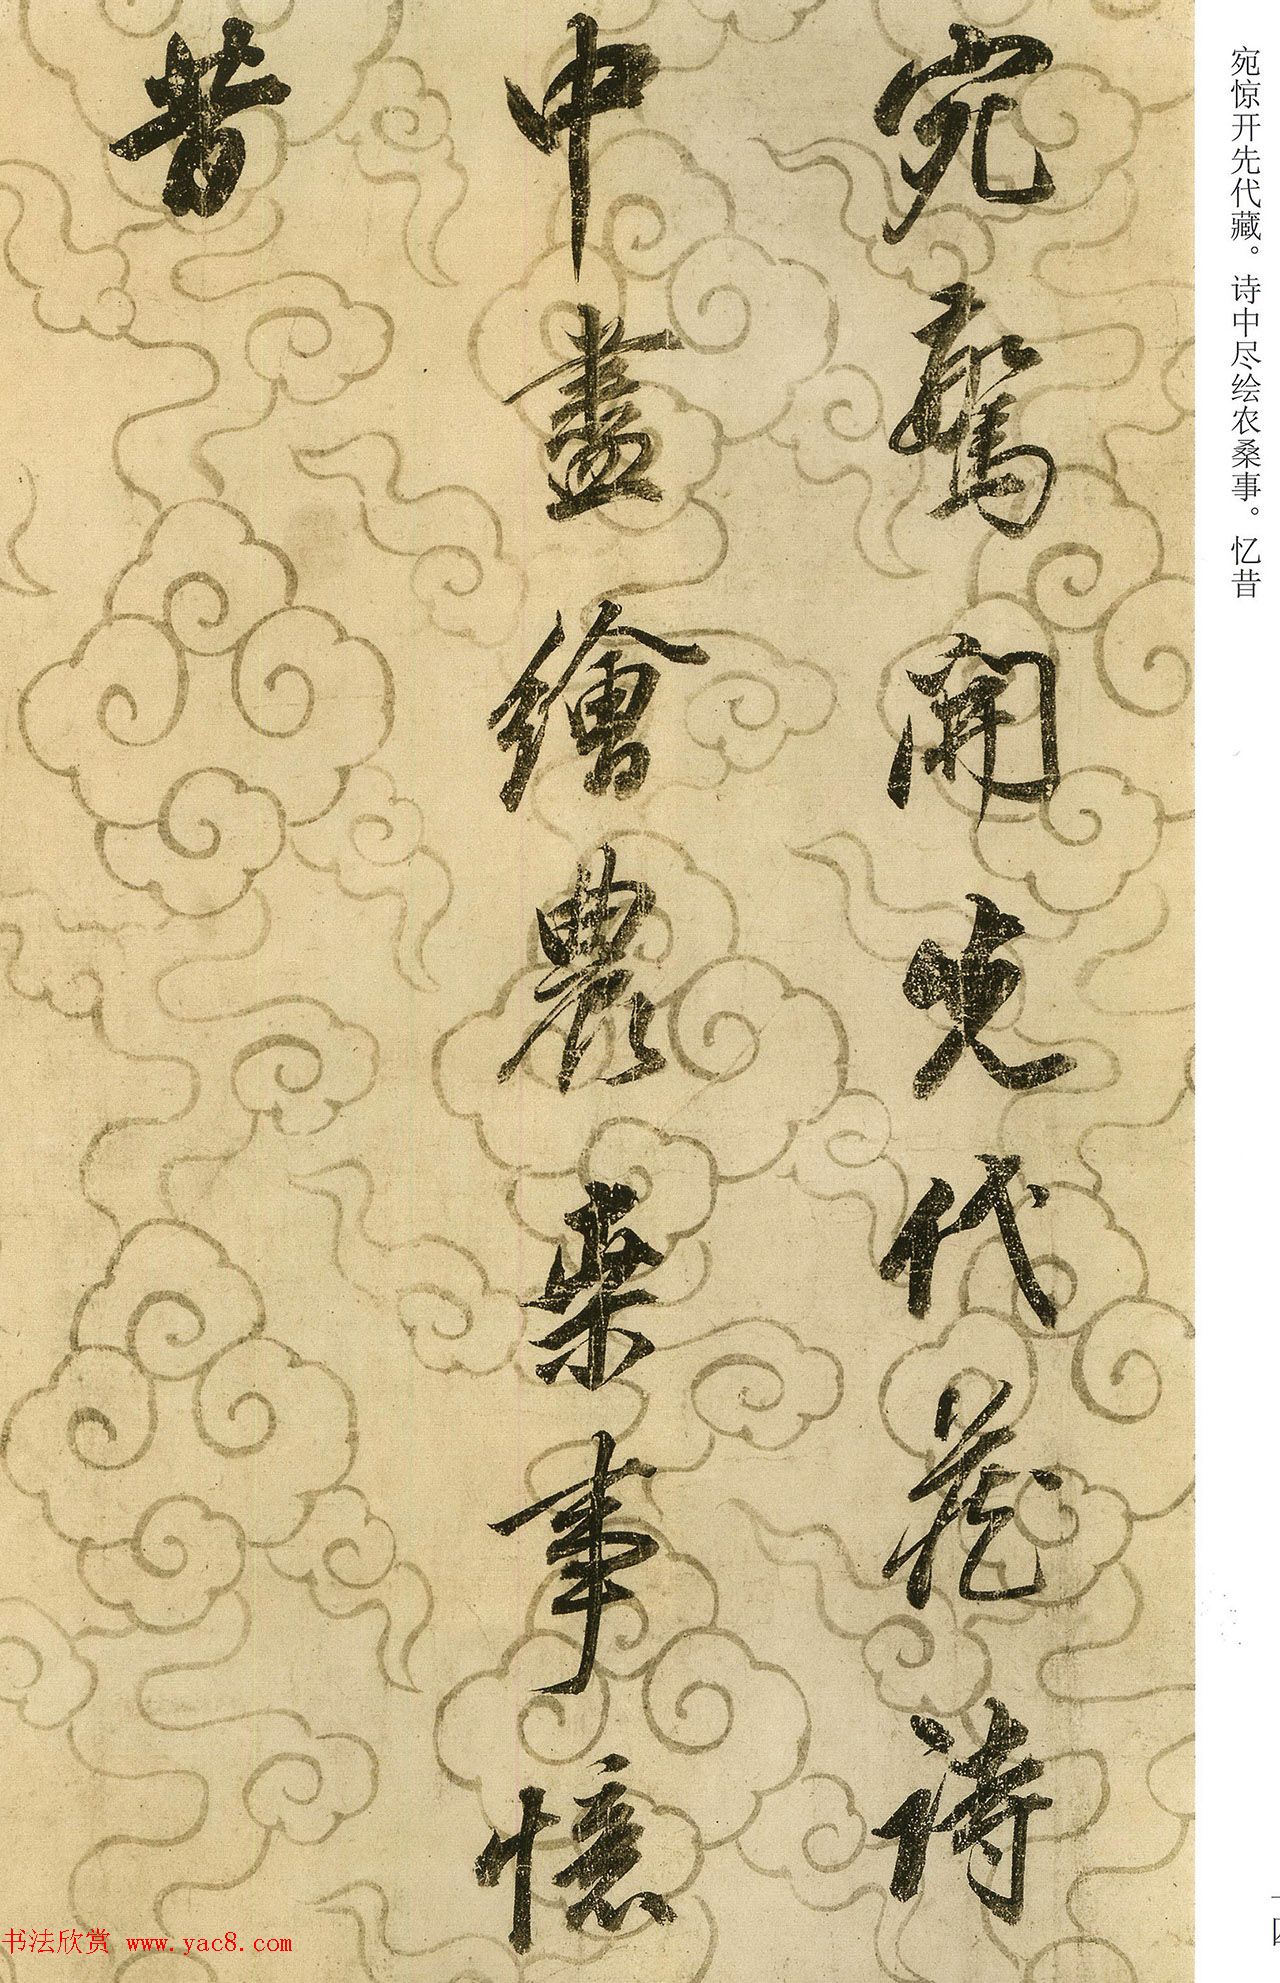 宛惊开先代藏。诗中尽绘农桑事。忆昔
宛驚開先代藏詩
中盡繪農桒事憶
昔
书法欣赏 www.yac8.com